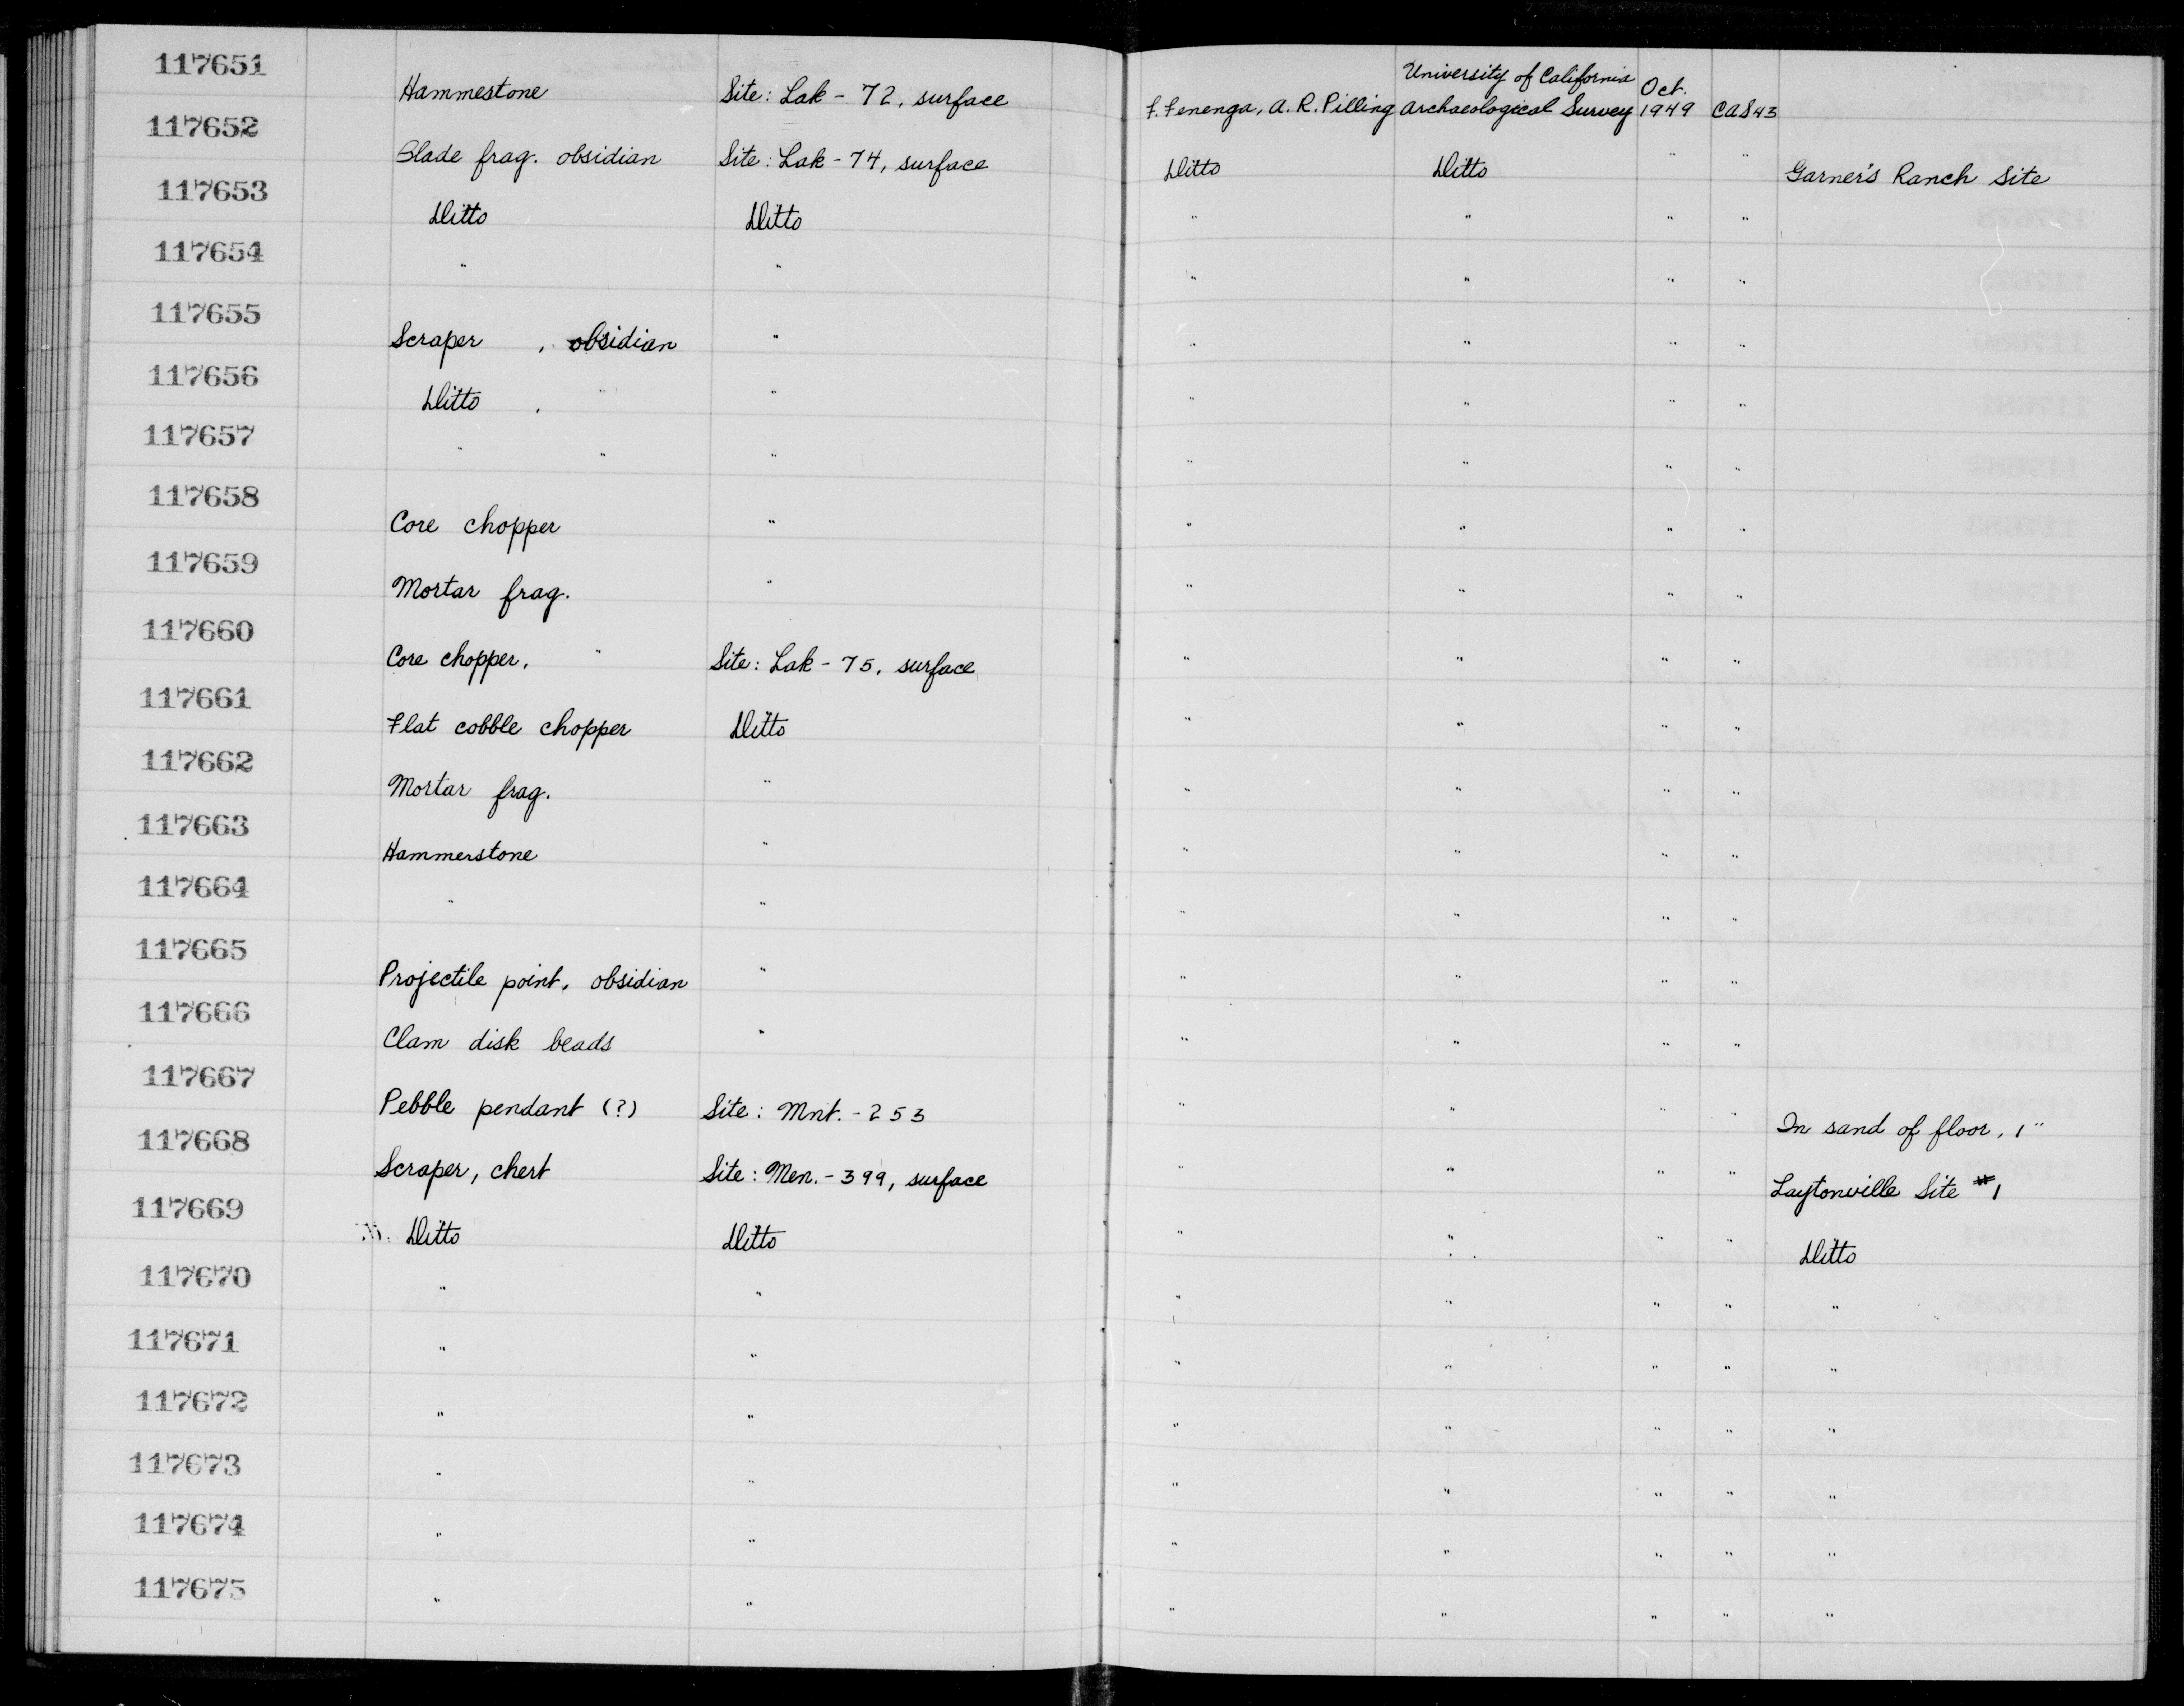 117651 Hammestone Site: Lak - 72, surface F. Fenenga, A. R. Pilling University of California Archaeological Survey Oct. 1949 CAS 43
117652 Blade frag. obsidian Site: Lak - 74, surface Ditto Ditto " " Garner's Ranch Site
117653 Ditto Ditto " " " "
117654 " " " " " "
117655 Scraper , obsidian " " " " "
117656 Ditto , " " " " " "
117657 " " " " " " "
117658 Core chopper " " " " "
117659 Mortar frag. " " " " "
117660 Core chopper, " Site: Lak - 75, surface " " " "
117661 Flat cobble chopper Ditto " " " "
117662 Mortar frag. " " " " "
117663 Hammerstone " " " " "
117664 " " " " " "
117665 Projectile point, obsidian " " " " "
117666 Clam disk beads " " " " "
117667 Pebble pendant (?) Site: Mnt. - 253 " " " " In sand of floor, 1"
117668 Scraper, chert Site: Men. - 399, surface " " " " Laytonville Site #1
117669 Ditto Ditto " " " " Ditto
117670 " " " " " " "
117671 " " " " " " "
117672 " " " " " " "
117673 " " " " " " "
117674 " " " " " " "
117675 " " " " " " "